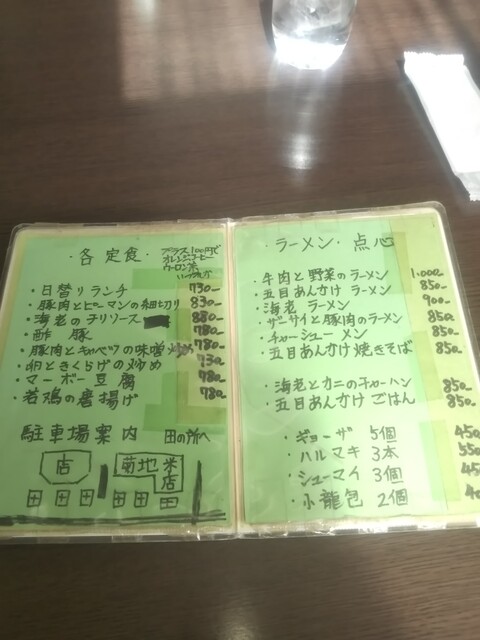 ・各定食・
プラス100円で
オレンジ コーヒー
ウーロン茶
・日替りランチ 730-
・豚肉とピーマンの細切り 830-
・海老のチリソース 880-
・酢豚 780-
・豚肉とキャベツの味噌炒め 780-
・卵ときくらげの炒め 730-
・マーボー豆腐 780-
・若鶏の唐揚げ 780-
駐車場案内 田の所へ
店 菊地米店
田 田 田 田 田 田
・ラーメン・点心
・牛肉と野菜のラーメン 1.000-
・五目あんかけラーメン 850-
・海老ラーメン 900-
・ザーサイと豚肉のラーメン 850-
・チャーシューメン 850-
・五目あんかけ焼きそば 850-
・海老とカニのチャーハン 850-
・五目あんかけごはん 850-
・ギョーザ 5個 450
・ハルマキ 3本 550
・シューマイ 3個 450
・小龍包 2個